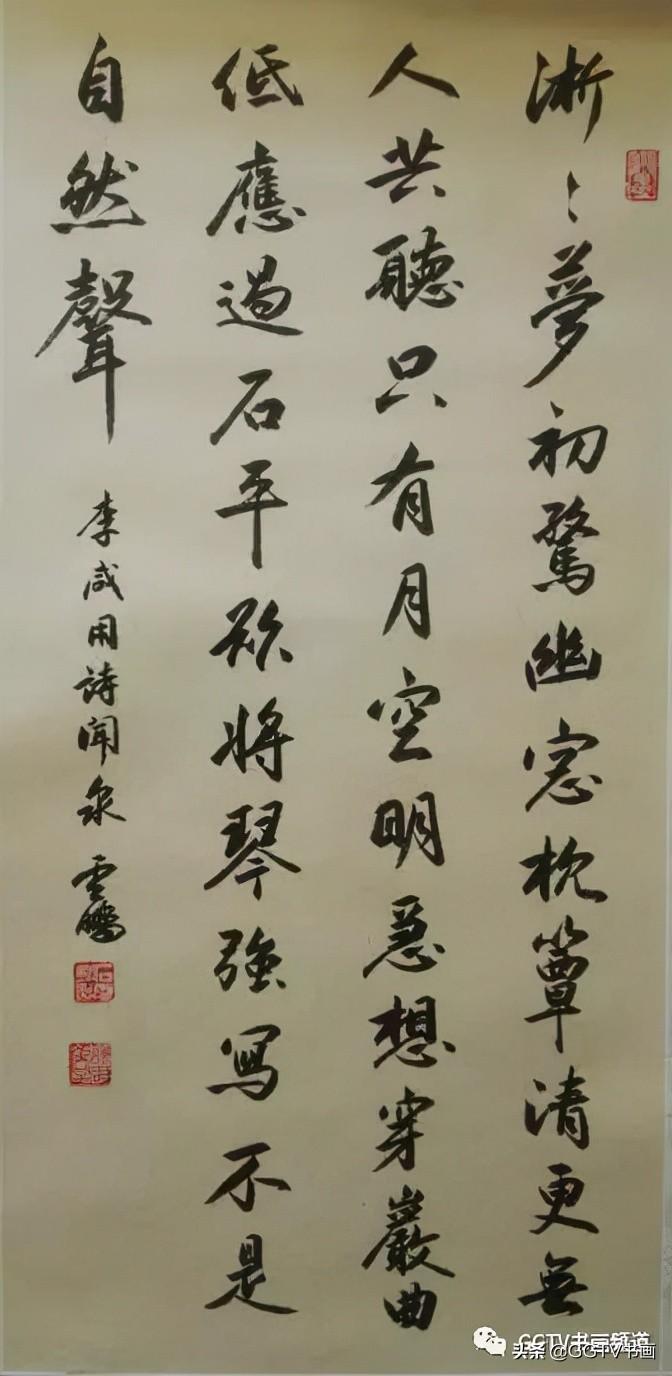 淅〻夢初驚幽窓枕簟清更無
人共聽只有月空明急想穿巖曲
低應過石平欲將琴強寫不是
自然聲
李咸用詩聞泉 雲鵬
CCTV书画频道
头条 @GGTV书画